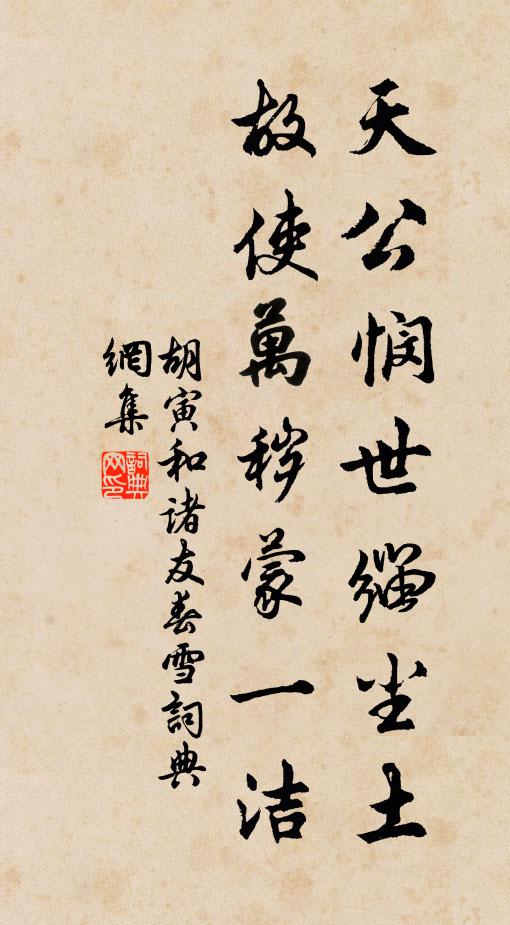 天公悯世缁尘土
故使萬秽蒙一洁
胡寅和诸友春雪詞典
網集
詞典网印